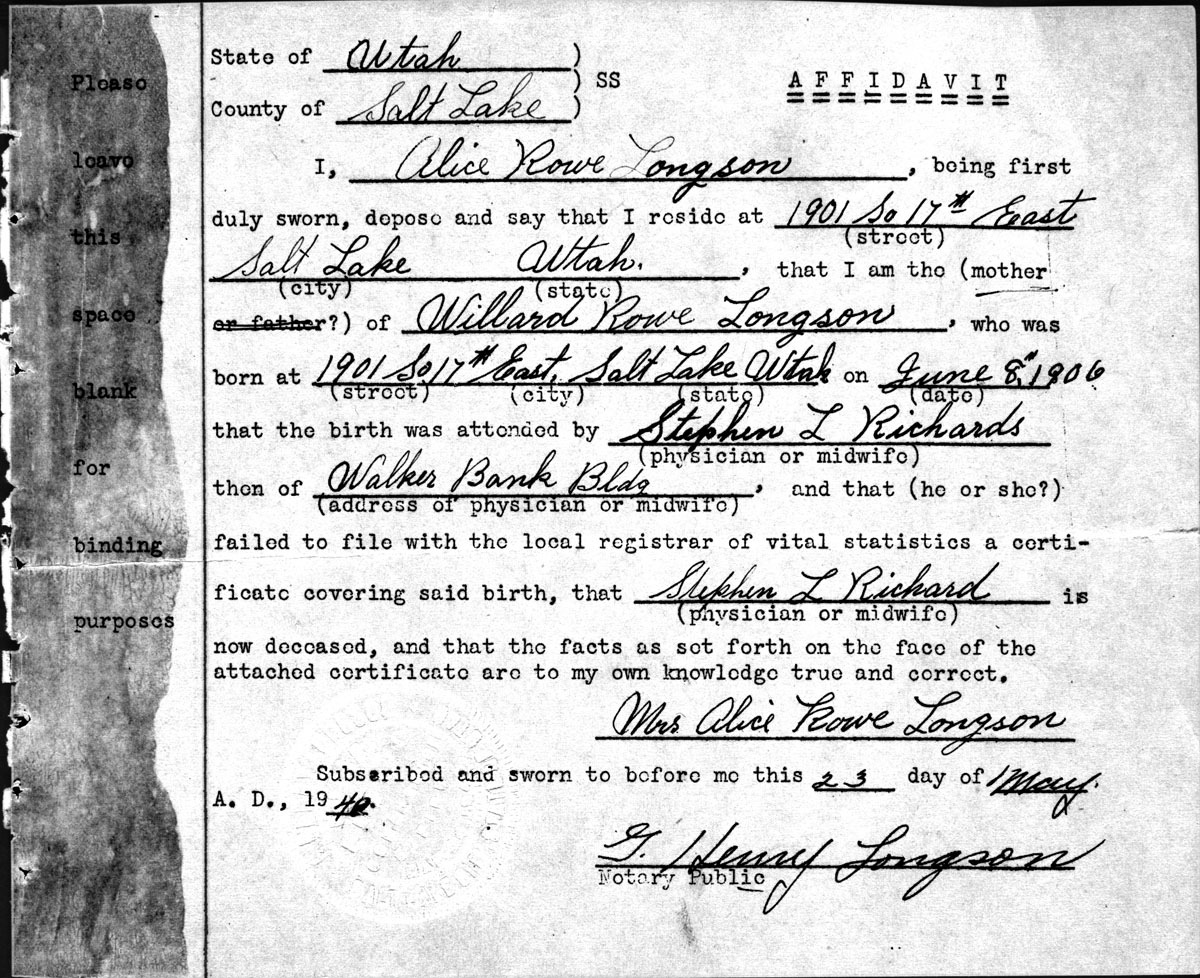 Please
leave
this
space
blank
for
binding
purposes
State of Utah )
) SS
County of Salt Lake )
AFFIDAVIT
I, Alice Rowe Longson, being first
duly sworn, depose and say that I reside at 1901 So 17th East
(street)
Salt Lake Utah. , that I am the (mother
(city) (state)
or father?) of Willard Rowe Longson, who was
born at 1901 So 17th East, Salt Lake Utah on June 8th, 1906
(street) (city) (state) (date)
that the birth was attended by Stephen L Richards
(physician or midwife)
then of Walker Bank Bldg, and that (he or she?)
(address of physician or midwife)
failed to file with the local registrar of vital statistics a certi-
ficate covering said birth, that Stephen L Richard is
(physician or midwife)
now deceased, and that the facts as set forth on the face of the
attached certificate are to my own knowledge true and correct.
Mrs Alice Rowe Longson
Subscribed and sworn to before me this 23 day of May.
A. D., 1940.
G. Henry Longson
Notary Public